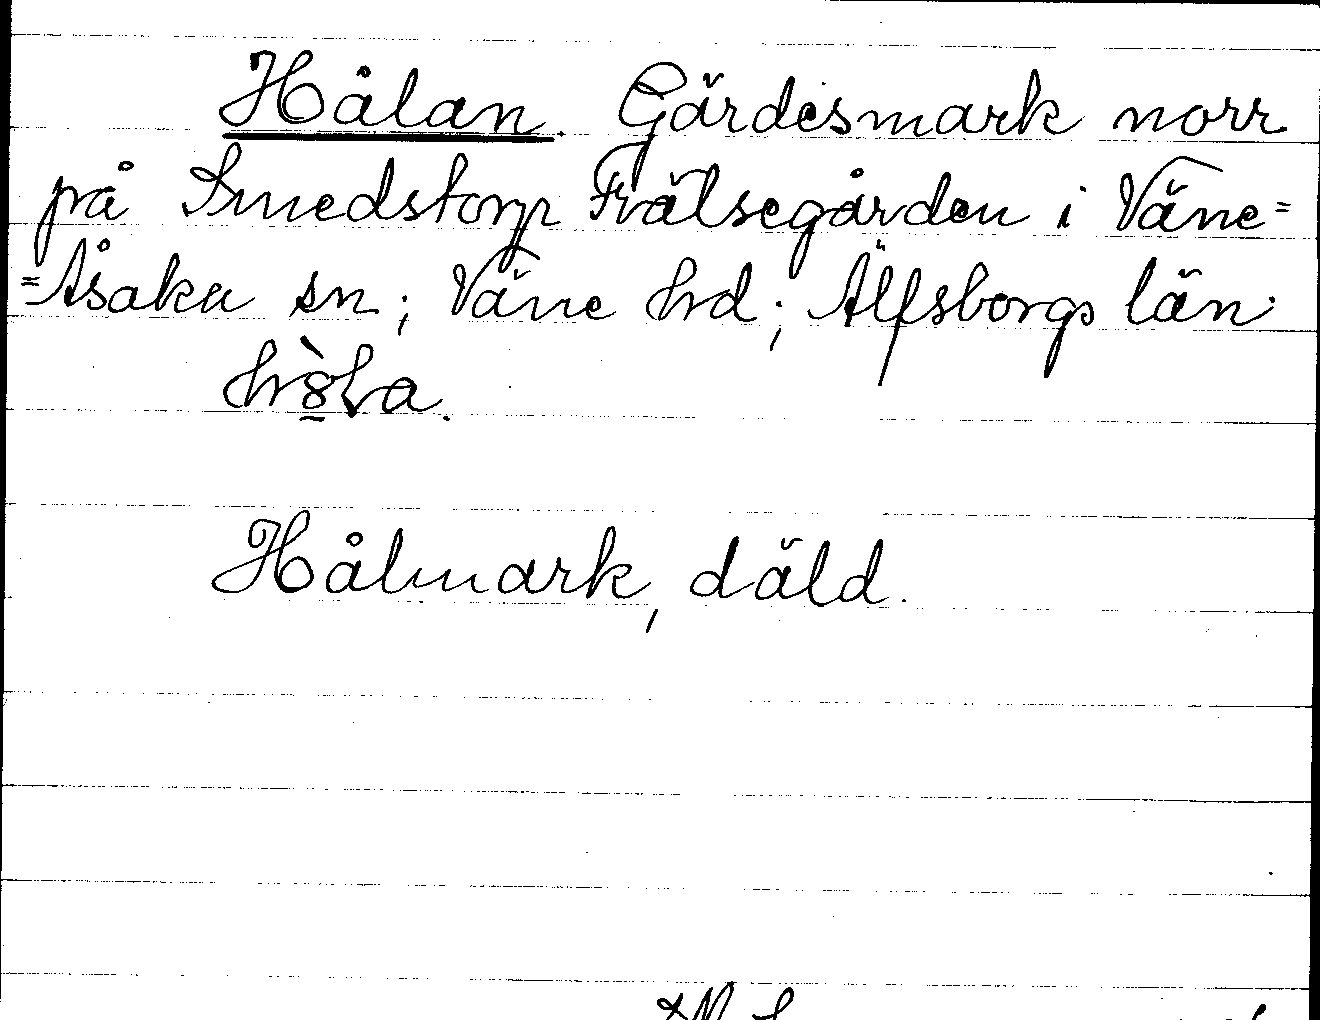 Hålan. Gärdesmark norr
på Smedstorp Frälsegården i Väne=
=Åsaka sn; Väne hd; Älfsborgs län.
Hålmark, däld.